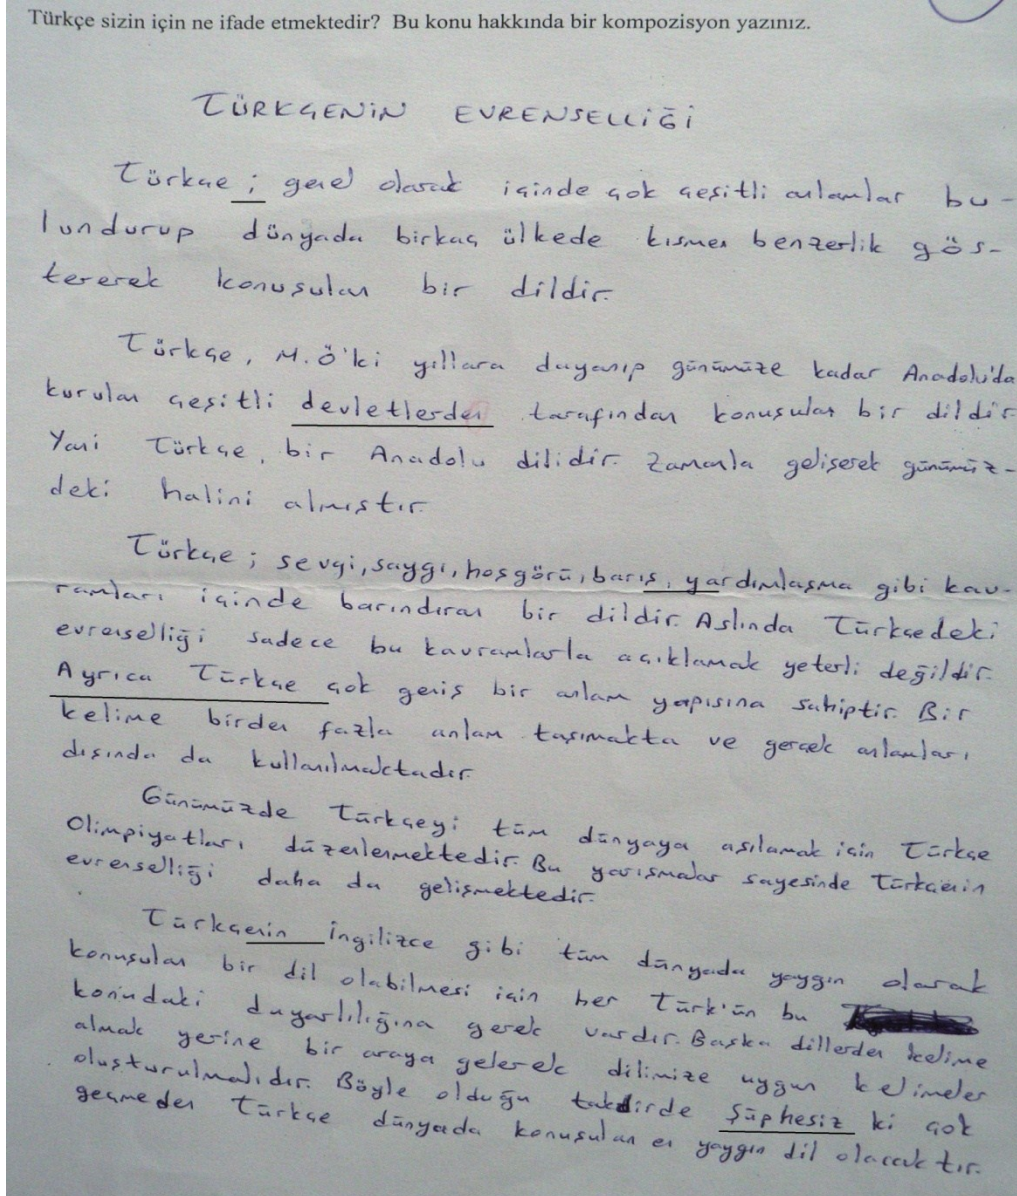 Türkçe sizin için ne ifade etmektedir? Bu konu hakkında bir kompozisyon yazınız.
TÜRKÇENİN EVRENSELLİĞİ
Türkçe ; genel olarak içinde çok çeşitli anlamlar bu-
lundurup dünyada birkaç ülkede kısmen benzerlik gös-
tererek konuşulan bir dildir.
Türkçe, M.Ö'ki yıllara dayanıp günümüze kadar Anadolu'da
kurulan çeşitli devletlerden tarafından konuşulan bir dildir.
Yani Türkçe, bir Anadolu dilidir. Zamanla gelişerek günümüz-
deki halini almıştır.
Türkçe ; sevgi, saygı, hoşgörü, barış, yardımlaşma gibi kav-
ramları içinde barındıran bir dildir. Aslında Türkçedeki
evrenselliği sadece bu kavramlarla açıklamak yeterli değildir.
Ayrıca Türkçe çok geniş bir anlam yapısına sahiptir. Bir
kelime birden fazla anlam taşımakta ve gerçek anlamları
dışında da kullanılmaktadır.
Günümüzde Türkçeyi tüm dünyaya aşılamak için Türkçe
Olimpiyatları düzenlenmektedir. Bu yarışmalar sayesinde Türkçenin
evrenselliği daha da gelişmektedir.
Türkçenin İngilizce gibi tüm dünyada yaygın olarak
konuşulan bir dil olabilmesi için her Türk'ün bu
konudaki duyarlılığına gerek vardır. Başka dillerden kelime
almak yerine bir araya gelerek dilimize uygun kelimeler
oluşturulmalıdır. Böyle olduğu takdirde şüphesiz ki çok
geçmeden Türkçe dünyada konuşulan en yaygın dil olacaktır.